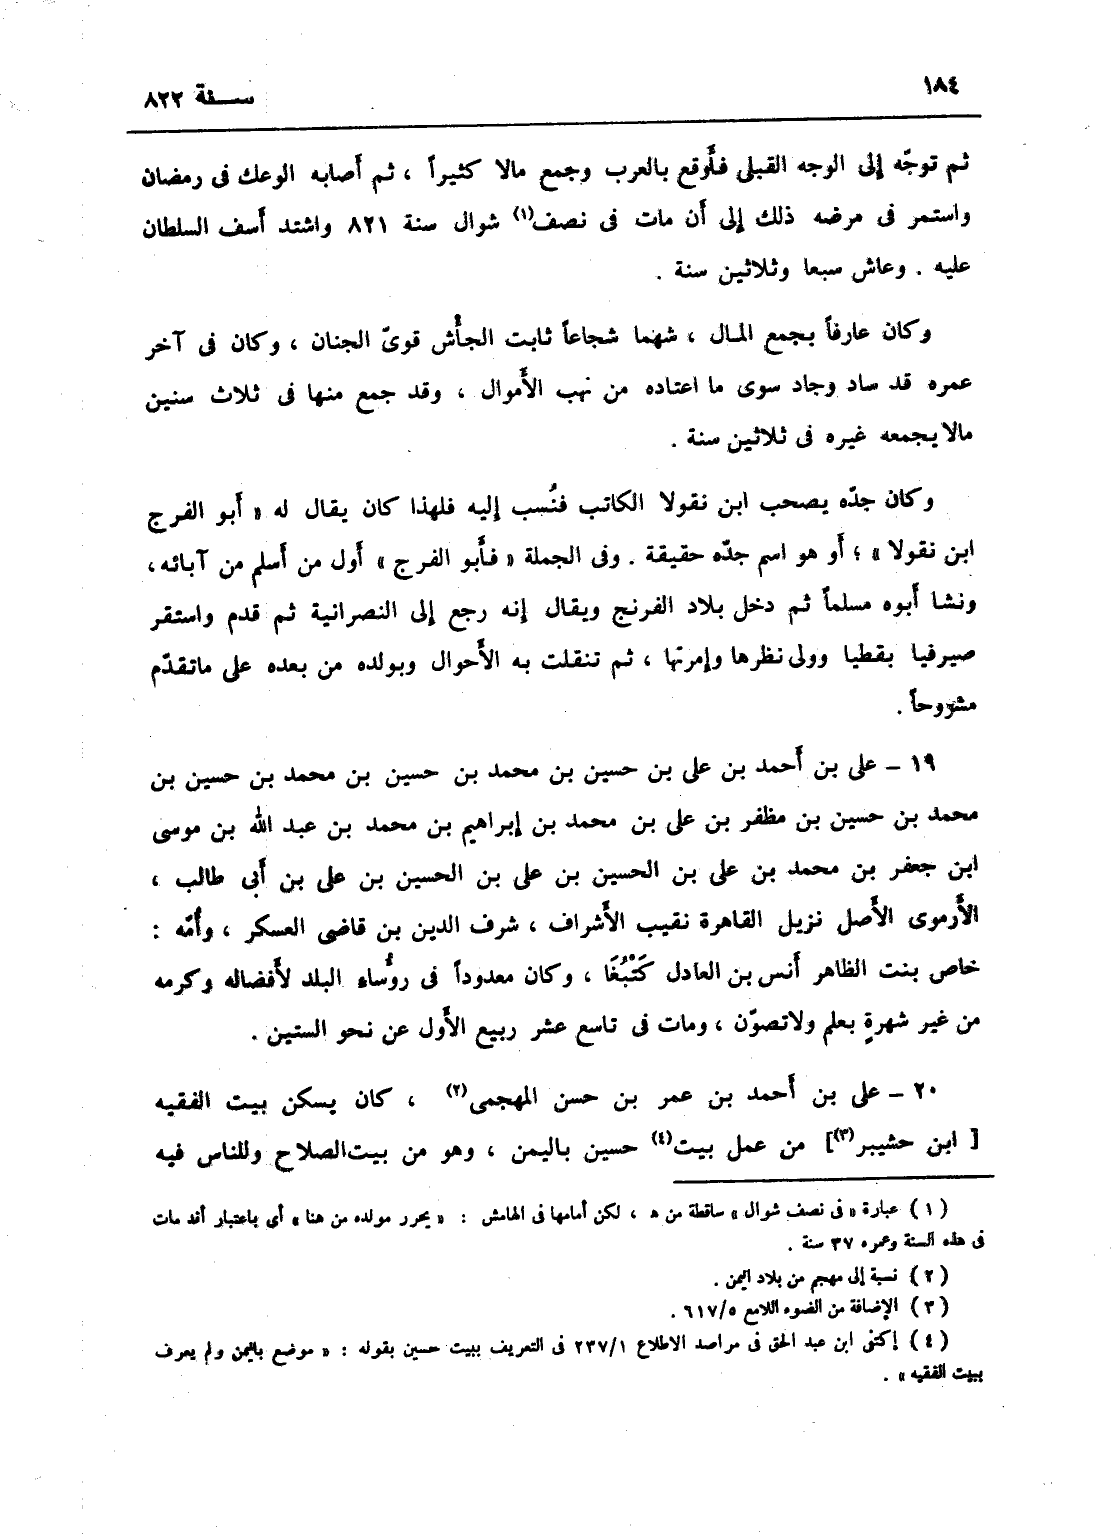 ١٨٤
ســنة ٨٢٢
ثم توجّه إلى الوجه القبلى فأَوقع بالعرب وجمع مالا كثيراً ، ثم أَصابه الوعك فى رمضان
واستمر فى مرضه ذلك إلى أَن مات فى نصف(١) شوال سنة ٨٢١ واشتد أَسف السلطان
عليه . وعاش سبعا وثلاثين سنة .
وكان عارفاً بجمع المال ، شهما شجاعاً ثابت الجأْش قوىّ الجنان ، وكان فى آخر
عمره قد ساد وجاد سوى ما اعتاده من نهب الأَموال ، وقد جمع منها فى ثلاث سنين
مالا يجمعه غيره فى ثلاثين سنة .
وكان جدّه يصحب ابن نقولا الكاتب فنُسب إليه فلهذا كان يقال له « أَبو الفرج
ابن نقولا » ؛ أَو هو اسم جدّه حقيقة . وفى الجملة « فأَبو الفرج » أَول من أَسلم من آبائه ،
ونشا أَبوه مسلماً ثم دخل بلاد الفرنج ويقال إنه رجع إلى النصرانية ثم قدم واستقر
صيرفيا بقطيا وولى نظرها وإمرتها ، ثم تنقلت به الأَحوال وبولده من بعده على ماتقدّم
مشروحاً .
١٩ ـ على بن أَحمد بن على بن حسين بن محمد بن حسين بن محمد بن حسين بن
محمد بن حسين بن مظفر بن على بن محمد بن إبراهيم بن محمد بن عبد الله بن موسى
ابن جعفر بن محمد بن على بن الحسين بن على بن الحسين بن على بن أَبى طالب ،
الأُرموى الأَصل نزيل القاهرة نقيب الأَشراف ، شرف الدين بن قاضى العسكر ، وأُمّه :
خاص بنت الظاهر أَنس بن العادل كَتْبُغَا ، وكان معدوداً فى روُّساء البلد لأَفضاله وكرمه
من غير شهرةٍ بعلم ولاتصوّن ، ومات فى تاسع عشر ربيع الأَول عن نحو الستين .
٢٠ ـ على بن أَحمد بن عمر بن حسن المهجمى(٢) ، كان يسكن بيت الفقيه
[ ابن حشيبر(٣)] من عمل بيت(٤) حسين باليمن ، وهو من بيت الصلاح وللناس فيه
( ١ ) عبارة « فى نصف شوال » ساقطة من ﻫ ، لكن أمامها فى الهامش : « يحرر مولده من هنا » أى باعتبار أنه مات
فى هذه السنة وعمره ٣٧ سنة .
( ٢ ) نسبة إلى مهجم من بلاد اليمن .
( ٣ ) الإضافة من الضوء اللامع ٦١٧/٥ .
( ٤ ) إكتفى ابن عبد الحق فى مراصد الاطلاع ٢٣٧/١ فى التعريف ببيت حسين بقوله : « موضع باليمن ولم يعرف
ببيت الفقيه » .